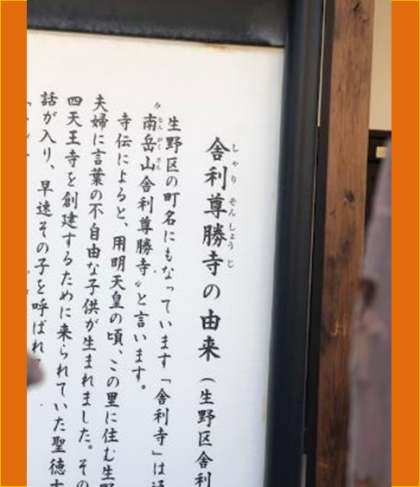 しゃり そんしょう じ
舎利尊勝寺の由来(生野区舎利
生野区の町名にもなっています「舎利寺」は
なんがくさん
〝南岳山舎利尊勝寺〟と言います。
寺伝によると、用明天皇の頃、この里に住む生野
夫婦に言葉の不自由な子供が生まれました。その
四天王寺を創建するために来られていた聖徳
話が入り、早速その子を呼ばれ